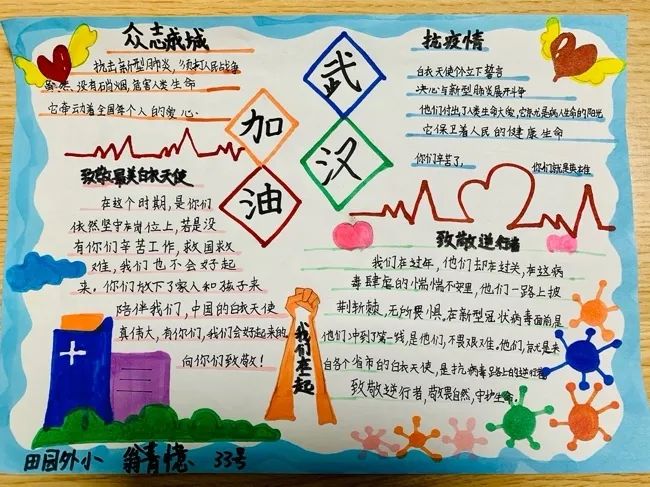 众志成城
抗击新型肺炎，
没有硝烟，危害人类生命
它牵动着全国每个人的爱心.
武
汉
加
油
抗疫情
白衣天使们立下誓言
决心与新型肺炎展开斗争
他们付出了人类生命大爱，它就光是病人生命的阳光
它保卫着人民的健康生命
你们辛苦了，你们就是英雄
致敬最美白衣天使
在这个时期，是你们
依然坚守在岗位上，若是没
有你们辛苦工作，救国救
难，我们也不会好起
来。你们放下了家人和孩子来
陪伴我们，中国的白衣天使
真伟大，有你们，我们会好起来的
向你们致敬！
致敬逆行者
我们在过年，他们却在过关，在这病
毒肆虐的惴惴不安里，他们一路上披
荆斩棘，无所畏惧。在新型冠状病毒面前是
他们冲到了第一线，是他们，不畏艰难。他们，就是来
自各个省市的白衣天使，是抗病毒路上的逆行者
致敬逆行者，敬畏自然，守护生命。
我们在一起
田园外小 翁青憶 33号